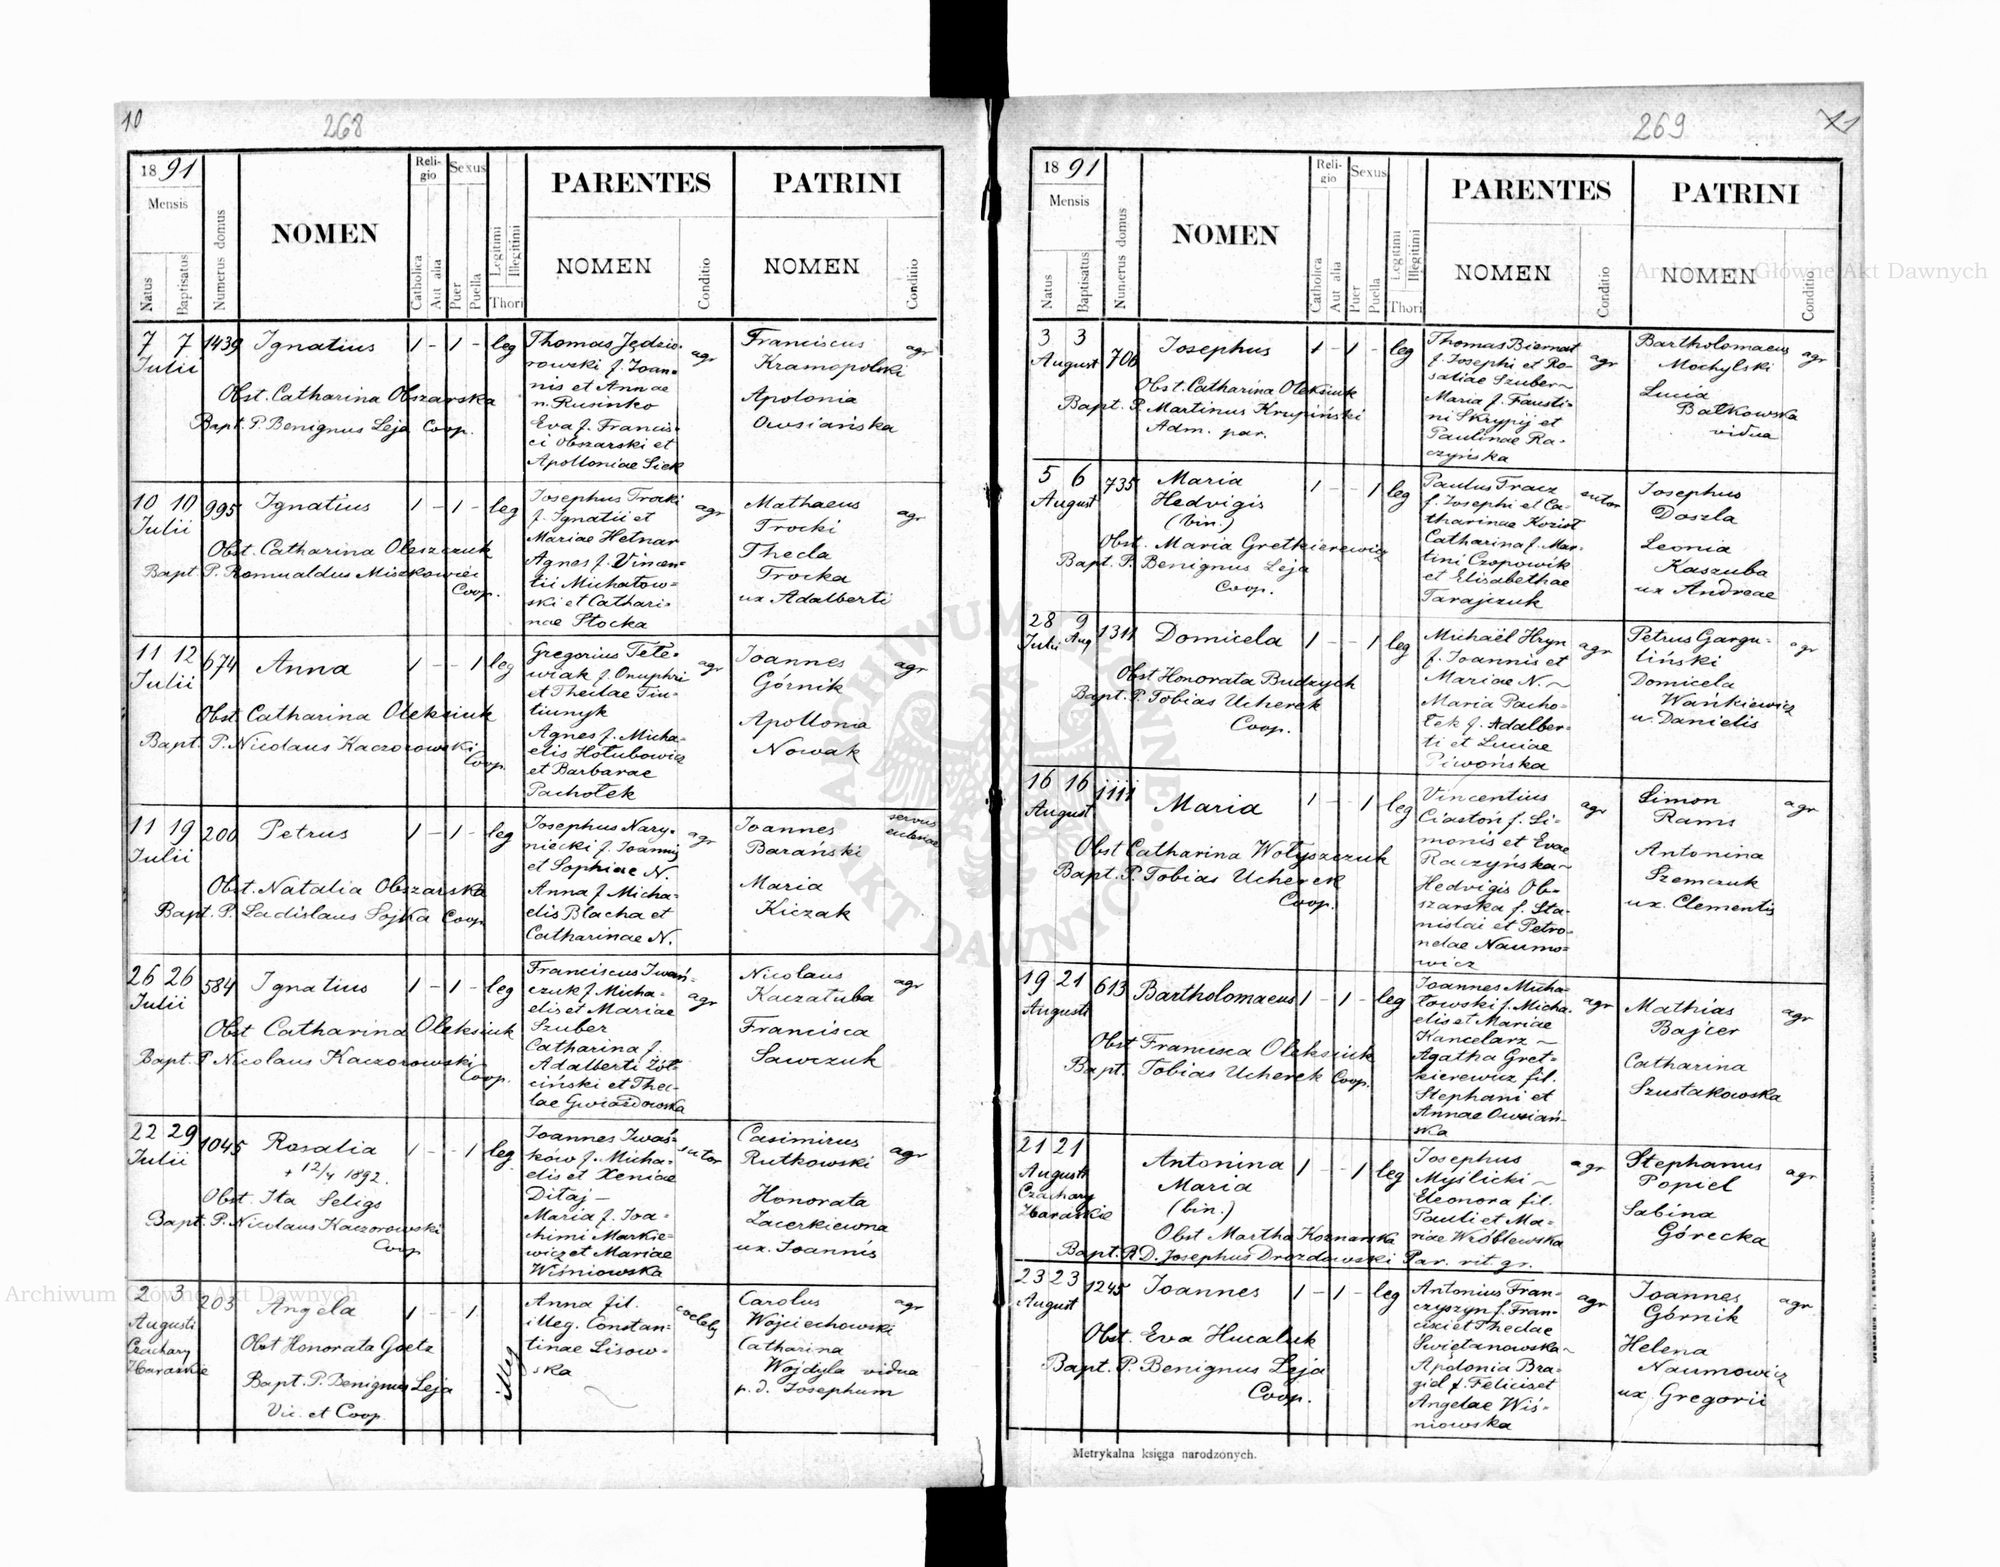 10
268
18 91
Mensis
Natus
Baptisatus
Numerus domus
NOMEN
Religio
Catholica
Aut alia
Sexus
Puer
Puella
Legitimi
Illegitimi
Thori
PARENTES
NOMEN
Conditio
PATRINI
NOMEN
Conditio
7 7 1439 Ignatius 1 - 1 - leg
Julii
Obst. Catharina Obszarska
Bapt. P. Benignus Leja Coop.
Thomas Jędzio-
rowski f. Joan-
nis et Annae
n. Rusinko
Eva f. Francis-
ci Obszarski et
Apolloniae Siek
agr
Franciscus
Kramopolski
Apolonia
Owsiańska
agr
10 10 995 Ignatius 1 - 1 - leg
Julii
Obst. Catharina Oleszczuk
Bapt P. Romualdus Miszkowicz
Coop.
Josephus Trocki
f. Ignatii et
Mariae Hetnar
Agnes f. Vincen-
tii Michałow-
ski et Cathari-
nae Stocka
agr
Mathaeus
Trocki
Thecla
Trocka
ux Adalberti
agr
11 12 674 Anna 1 - - 1 leg
Julii
Obst. Catharina Oleksiuk
Bapt. P. Nicolaus Kaczorowski
Coop.
Gregorius Tete-
wiak f. Onuphri
et Theclae Tiu-
tiunyk
Agnes f. Micha-
elis Hołubowicz
et Barbarae
Pachołek
agr
Joannes
Górnik
Apollonia
Nowak
agr
11 19 200 Petrus 1 - 1 - leg
Julii
Obst. Natalia Obszarska
Bapt. P. Ladislaus Sojka Coop.
Josephus Nary-
niecki f. Joannis
et Sophiae N.
Anna f. Micha-
elis Blacha et
Catharinae N.
agr
Joannes
Barański
Maria
Kiczak
servus
ecclesiae
26 26 584 Ignatius 1 - 1 - leg
Julii
Obst Catharina Oleksiuk
Bapt. P Nicolaus Kaczorowski
Coop.
Franciscus Iwań-
czuk f. Micha-
elis et Mariae
Szuber
Catharina f.
Adalberti Żół-
ciński et Thec-
lae Gwiazdowska
agr
Nicolaus
Kaczałuba
Francisca
Sawczuk
agr
22 29 1045 Rosalia 1 - - 1 leg
Julii
+ 12/4 1892.
Obst Ita Seligs
Bapt. P. Nicolaus Kaczorowski
Coop
Joannes Iwaś-
ków f. Micha-
elis et Xeniae
Ditaj -
Maria f. Joa-
chimi Markie-
wicz et Mariae
Wiśniowska
sutor
Casimirus
Rutkowski
Honorata
Zacerkiewna
ux. Joannis
agr
2 3 203 Angela 1 - - 1.
Augusti
Czachary
Zbaraskie
illeg
Obst Honorata Goetz
Bapt. P. Benignus Leja
Vic. et Coop.
Anna fil.
illeg. Constan-
tinae Lisow-
ska
coelebs
Carolus
Wojciechowski
Catharina
Wojdyla vidua
p. d. Josephum
agr
269
11
18 91
Mensis
Natus
Baptisatus
Numerus domus
NOMEN
Religio
Catholica
Aut alia
Sexus
Puer
Puella
Legitimi
Illegitimi
Thori
PARENTES
NOMEN
Conditio
PATRINI
NOMEN
Conditio
3 3 706 Josephus 1 - 1 - leg
August
Obst. Catharina Oleksiuk
Bapt. P. Martinus Krupiński
Adm. par.
Thomas Biernat
f. Josephi et Ro-
saliae Szuber ~
Maria f. Fausti-
ni Skrypij et
Paulinae Ra-
czyńska
agr
Bartholomaeus
Mochylski
Lucia
Bałkowska
vidua
agr
5 6 735 Maria 1 - - 1 leg
August
Hedvigis
(bin.)
Obst. Maria Gretkierewicz
Bapt. P. Benignus Leja
Coop.
Paulus Tracz
f. Josephi et Ca-
tharinae Kozioł
Catharina f. Mar-
tini Czopowik
et Elisabethae
Tarajczuk
sutor
Josephus
Doszla
Leonia
Kaszuba
ux Andreae
28 9 1311 Domicela 1 - - 1 leg
Julii Aug
Obst Honorata Budzych
Bapt. P. Tobias Ucherek
Coop.
Michaël Hryn
f. Joannis et
Mariae N. ~
Maria Pacho-
łek f. Adalber-
ti et Luciae
Piwońska
agr
Petrus Gargu-
liński
Domicela
Wańkiewicz
u. Danielis
agr
16 16 1111 Maria 1 - - 1 leg
August
Obst Catharina Wołyszczuk
Bapt. P. Tobias Ucherek
Coop.
Vincentius
Ciastoń f. Si-
monis et Evae
Raczyńska ~
Hedvigis Ob-
szarska f. Sta-
nislai et Petro-
nelae Naumo-
wicz
agr
Simon
Rams
Antonina
Szemczuk
ux. Clementis
agr
19 21 613 Bartholomaeus 1 - 1 - leg
Augusti
Obst Francisca Oleksiuk
Bapt. Tobias Ucherek Coop.
Joannes Micha-
łowski f. Micha-
elis et Mariae
Kancelarz ~
Agatha Gret-
kierewicz fil.
Stephani et
Annae Owsiań-
ska
agr
Mathias
Bajcer
Catharina
Szustakowska
agr
21 21 Antonina 1 - - 1 leg
Augusti
Czachary
Zbaraskie
Maria
(bin.)
Obst Martha Koznarska
Bapt. R. D. Josephus Drozdowski Par. rit. gr.
Josephus
Myślicki ~
Eleonora fil.
Pauli et Ma-
riae Wróblewska
agr
Stephanus
Popiel
Sabina
Górecka
agr
23 23 1245 Joannes 1 - 1 - leg
August
Obst. Eva Hucaluk
Bapt. P. Benignus Leja
Coop.
Antonius Fran-
czyszyn f. Fran-
cisci et Theclae
Swiętanowska ~
Apolonia Bra-
giel f. Felicis et
Angelae Wiś-
niowska
agr
Joannes
Górnik
Helena
Naumowicz
ux. Gregorii
agr
Metrykalna księga narodzonych.
Archiwum Główne Akt Dawnych
Archiwum Główne Akt Dawnych
ARCHIWUM GŁÓWNE
AKT DAWNYCH